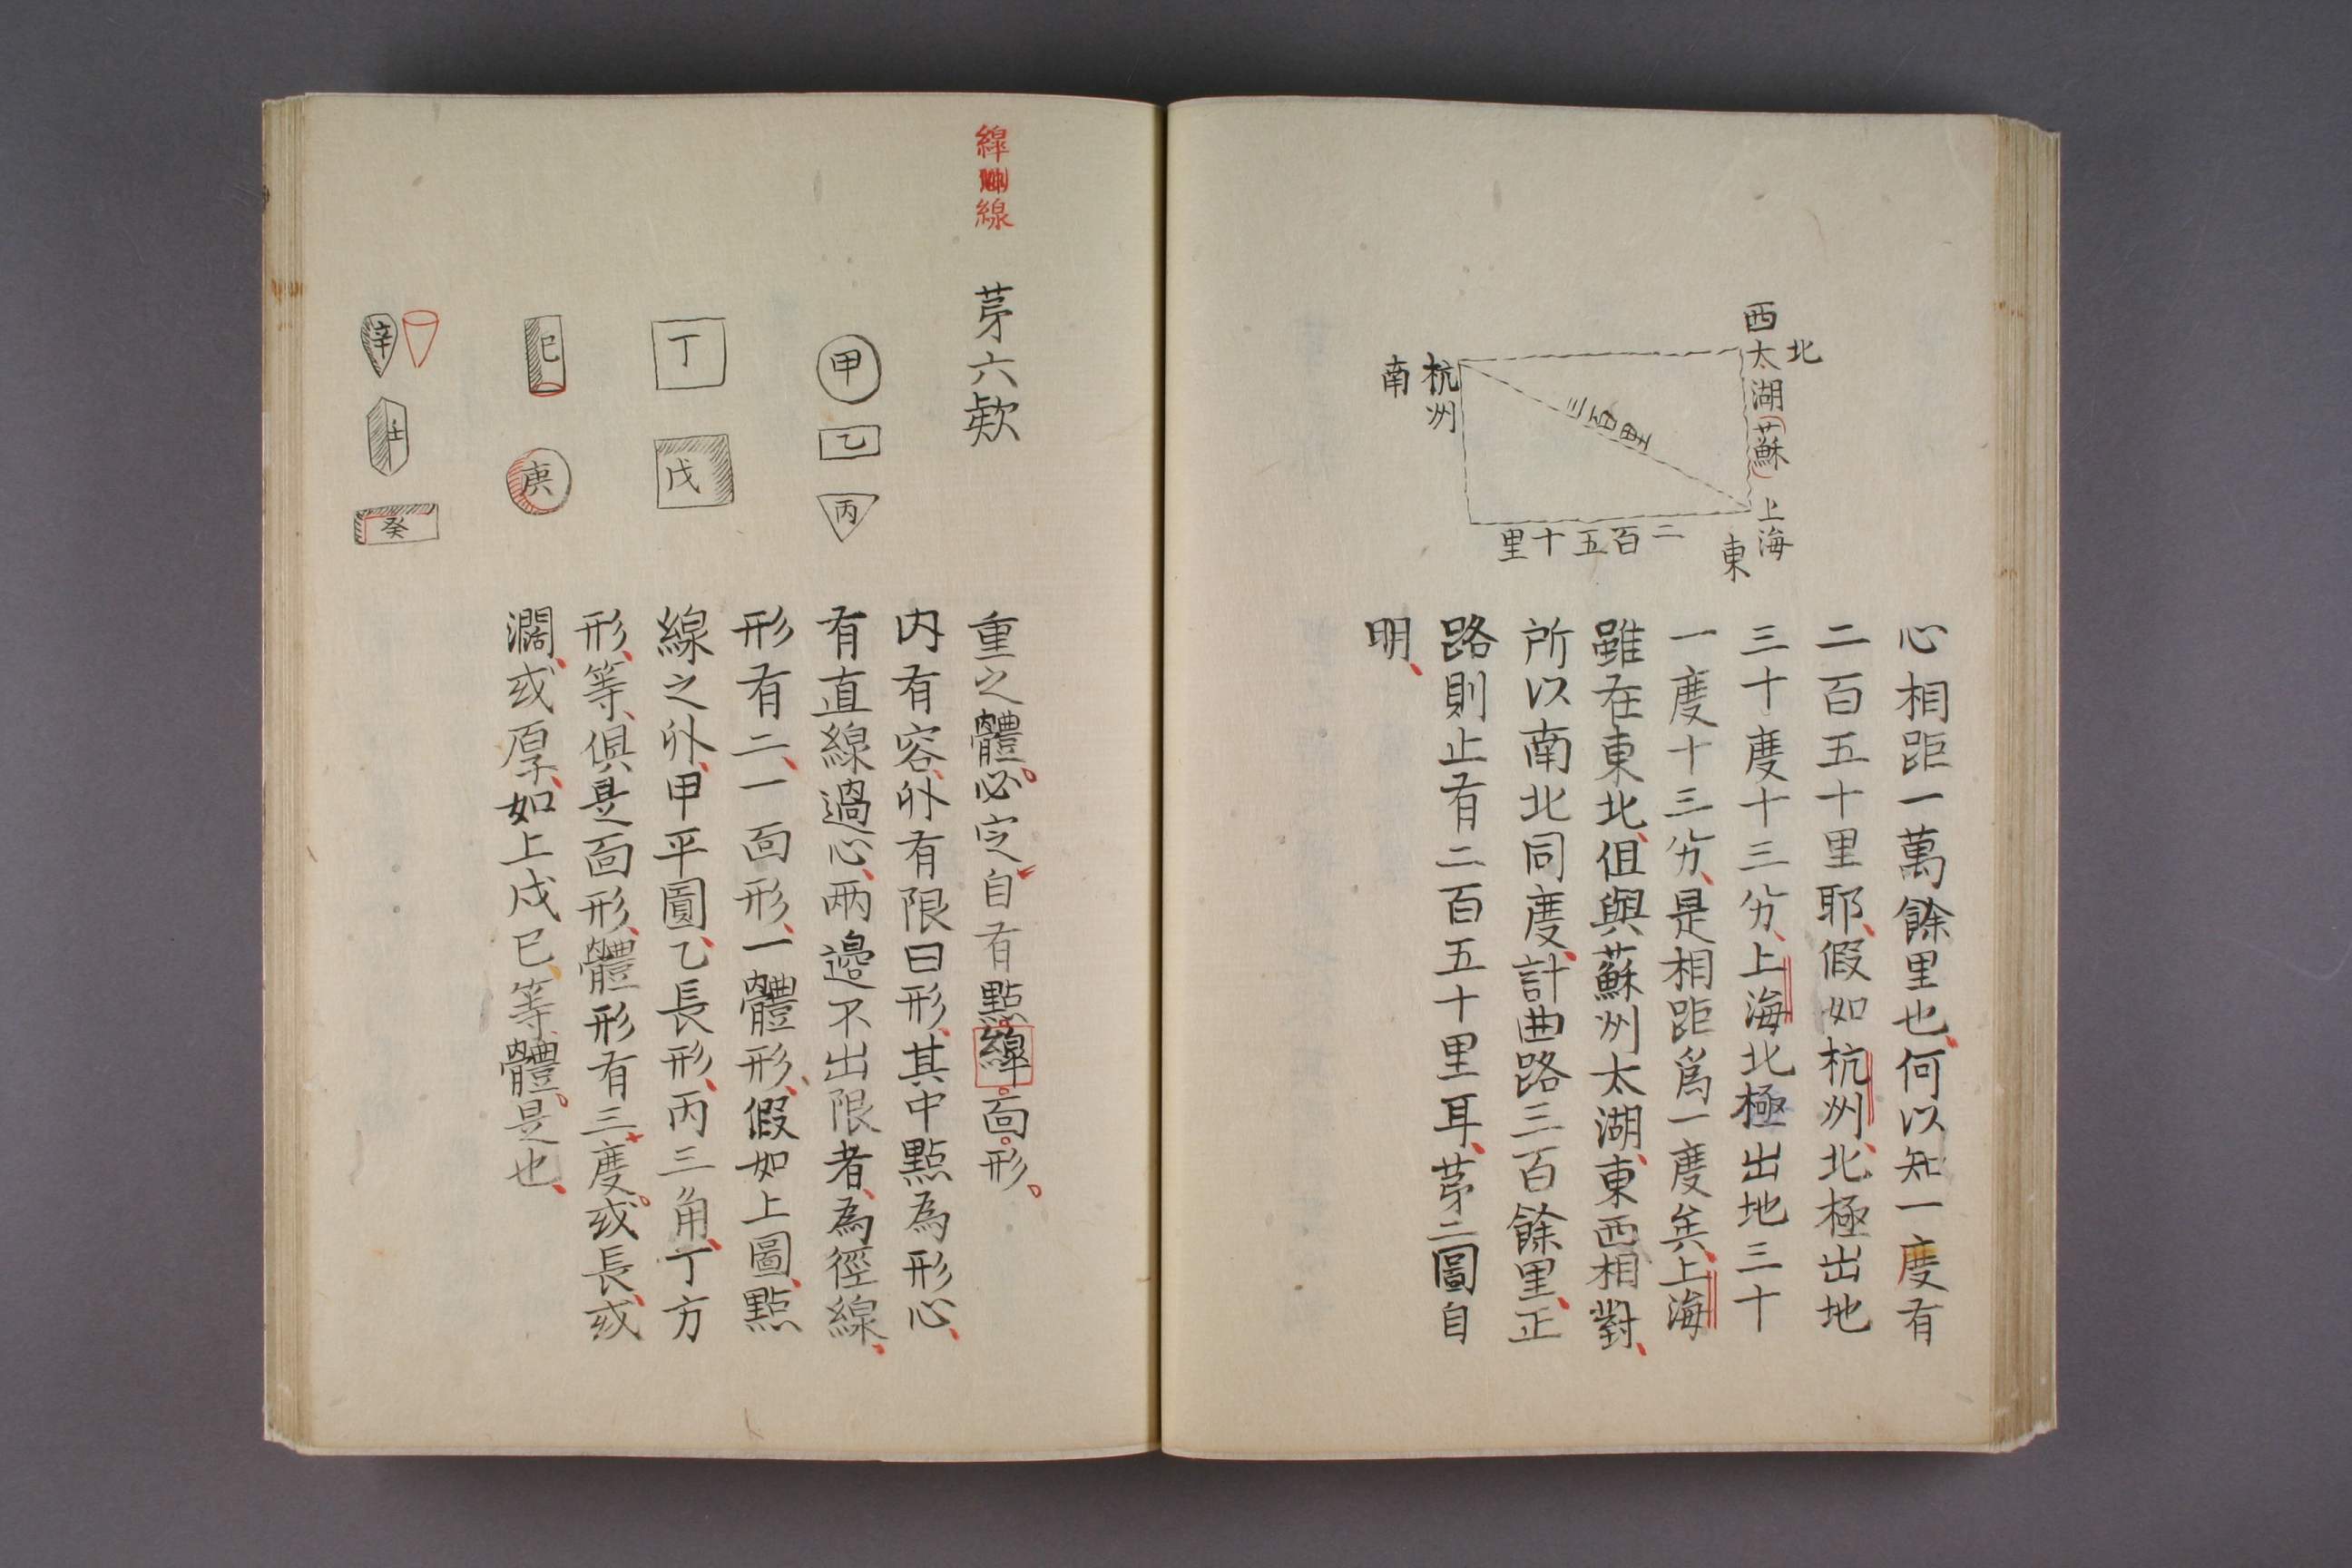 西
北
太湖(蘇)
上海
東
杭州
南
三百里
二百五十里
心相距一萬餘里也、何以知一度有
二百五十里耶、假如杭州、北極出地
三十度十三分、上海北極出地三十
一度十三分、是相距爲一度矣、上海
雖在東北、但與蘇州太湖、東西相對、
所以南北同度、計曲路三百餘里、正
路則止有二百五十里耳、苐二圖自
明、
線
線
苐六欵
甲
乙
丙
丁
戊
巳
庚
辛
壬
癸
重之體。必定自有點。線。面。形。
内有容、外有限曰形、其中點為形心、
有直線過心、兩邊不出限者、為徑線、
形有二、一面形、一體形、假如上圖、點
線之外、甲平圓、乙長形、丙三角、丁方
形、等、俱是面形、體形有三度。或長、或
濶、或厚、如上戊巳、等體。是也、